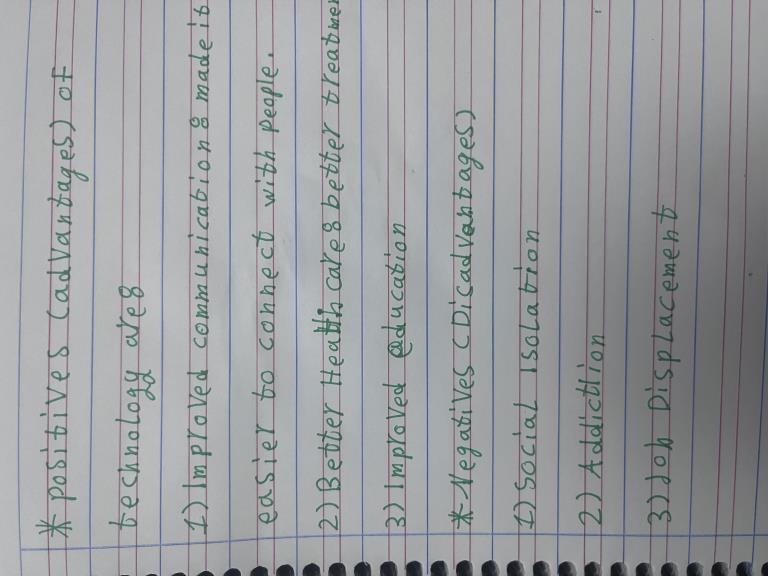 * positives (advantages) of
technology are:
1) Improved communication: made it
easier to connect with people.
2) Better Health care: better treatmen
3) Improved education
* Negatives (Disadvantages)
1) Social Isolation
2) Addiction
3) Job Displacement